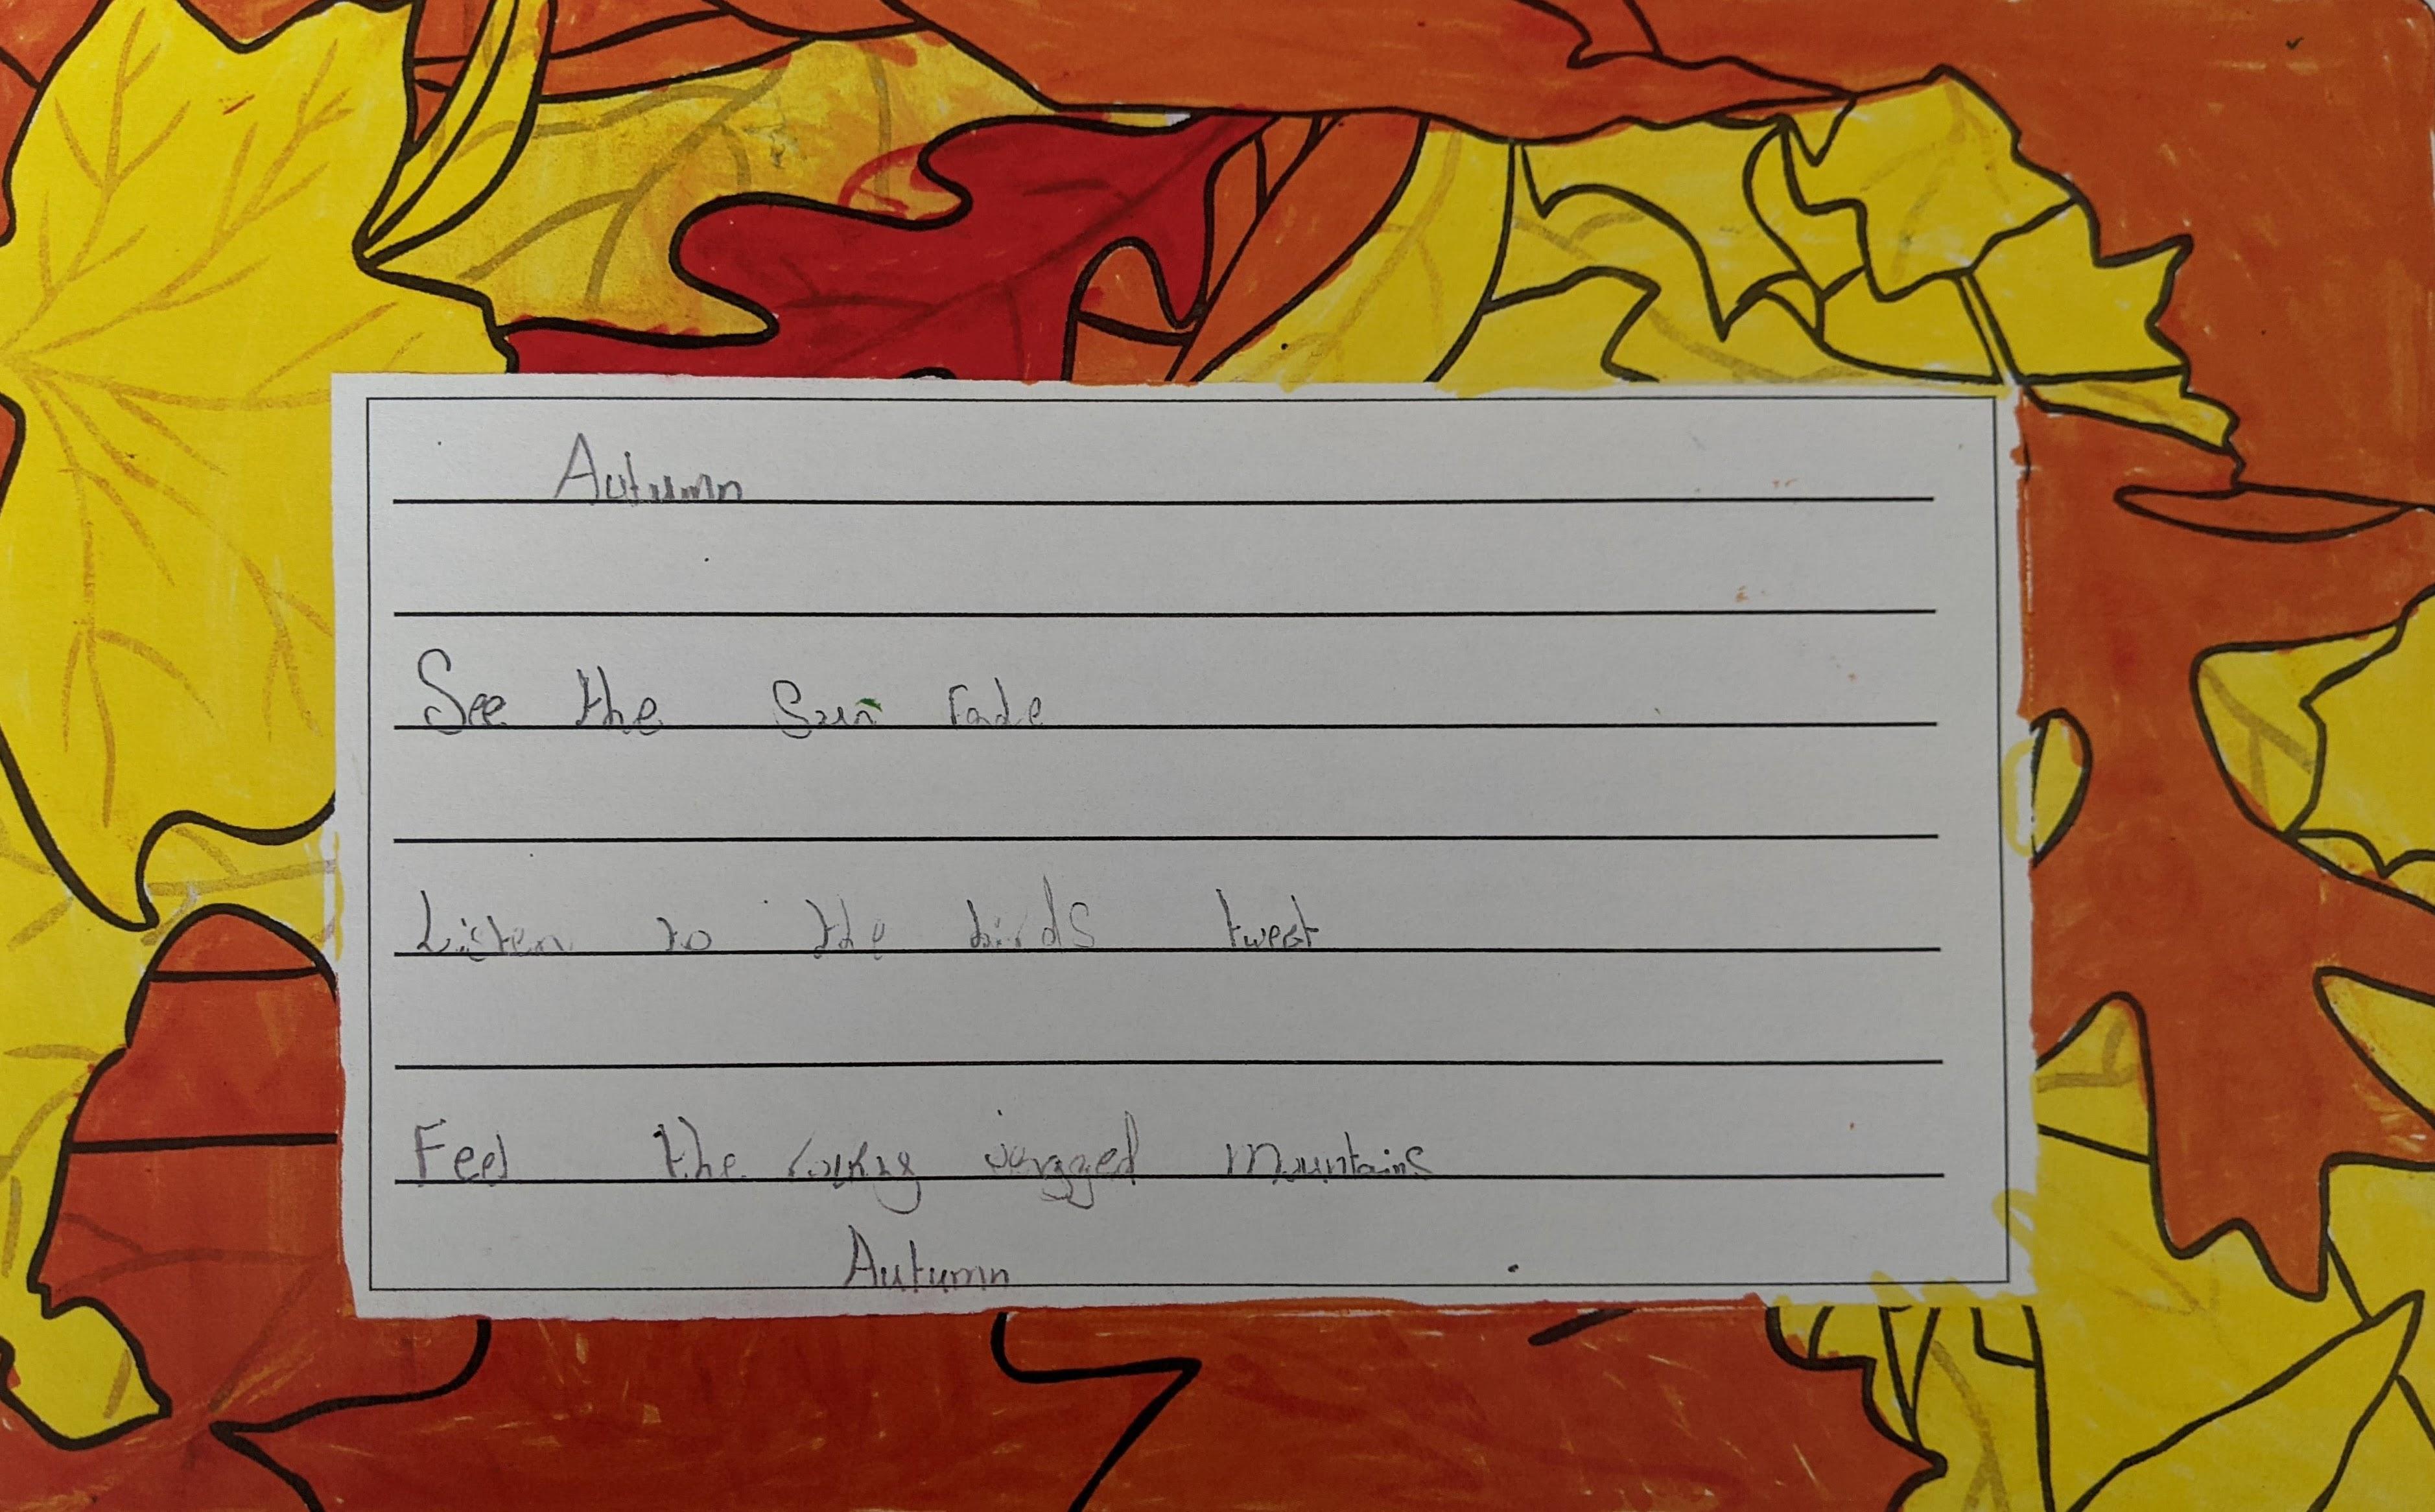 Autumn
See the Sun Fade
Listen to the birds tweet
Feel the rocky jagged mountains
Autumn